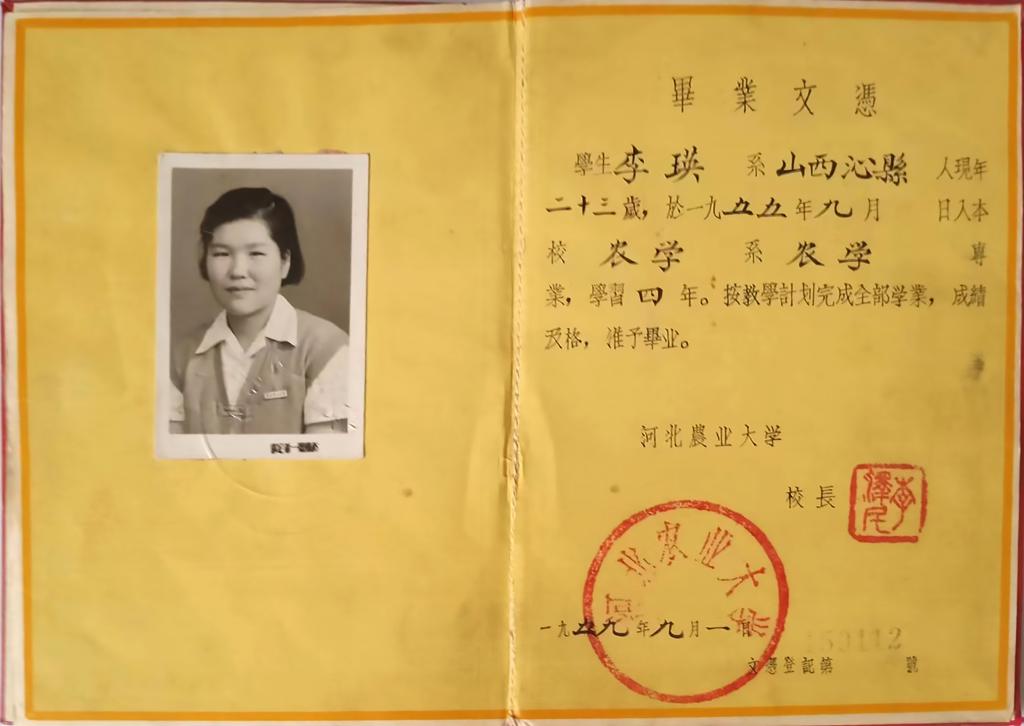 畢業文憑
學生李瑛 系山西沁縣 人現年
二十三歲，於一九五五年九月 日入本
校 农学 系 农学 專
業，學習四年。按教學計划完成全部学業，成績
及格，准予畢业。
河北農业大学
校長
李澤民
河北农业大学
一九五九年九月一日
文憑登記第 159112 號